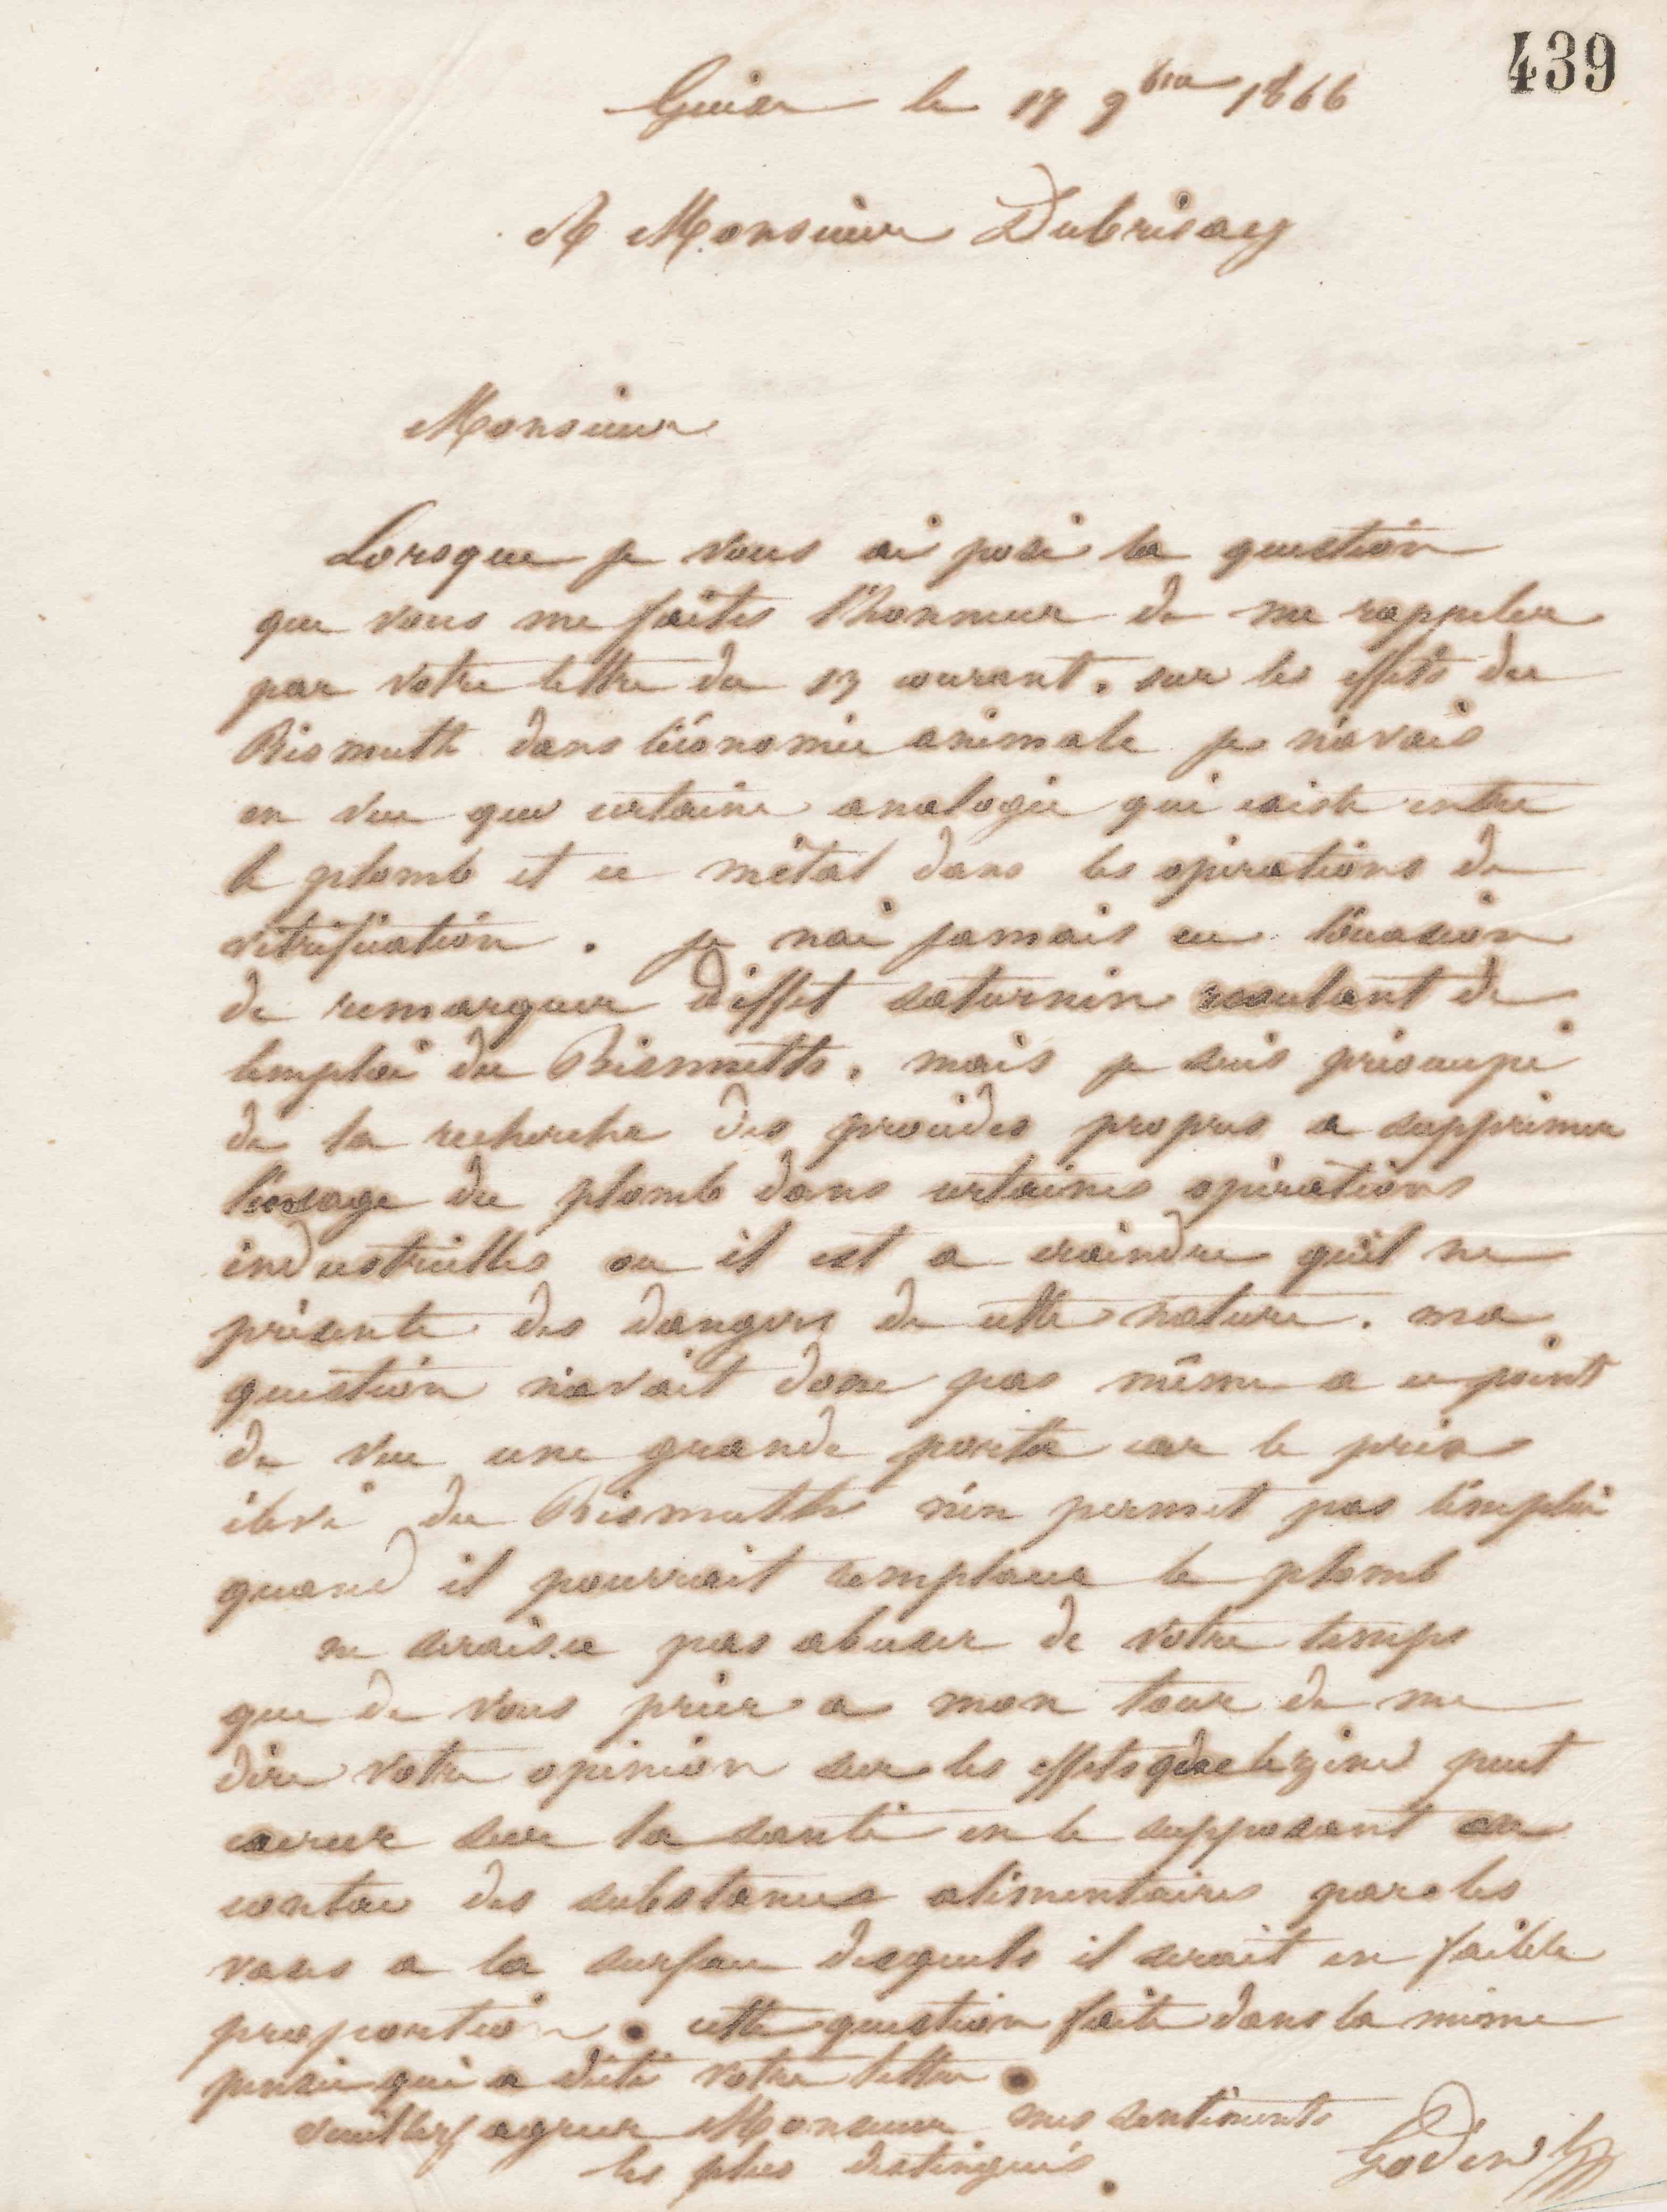 439
Guise le 17 9bre 1866
A Monsieur Dubrisay
Monsieur
Lorsque je vous ai posé la question
que vous me faites l'honneur de me rappeler
par votre lettre du 13 courant. sur les effets du
Bismuth dans l'économie animale je n'avais
en vue que certaine analogie qui existe entre
le plomb et ce métal dans les opérations de
vitrification. je nai jamais eu l'occasion
de remarquer d'effet saturnin resulant de
lemploi du Bismuth. mais je suis préoccupé
de la recherche des procédés propres a supprimer
l'usage du plomb dans certaines opérations
industrielles ou il est a craindre qu'il ne
présente des dangers de cette nature. ma
question n'avait donc pas même a ce point
de vue une grande portée car le prix
élevé du Bismuth n'en permet pas l'emploi
quand il pourrait remplacer le plomb
ne serais.ce pas abuser de votre temps
que de vous prier a mon tour de me
dire votre opinion sur les effets que le zinc peut
exercer sur la santé en le supposant au
contac des substances alimentaires par les
vases a la surface desquels il serait en faible
proportion. cette question faite dans la même
pensée qui a dicté votre lettre.
veuillez agréer Monsieur mes sentiments
les plus distingués.
Godin